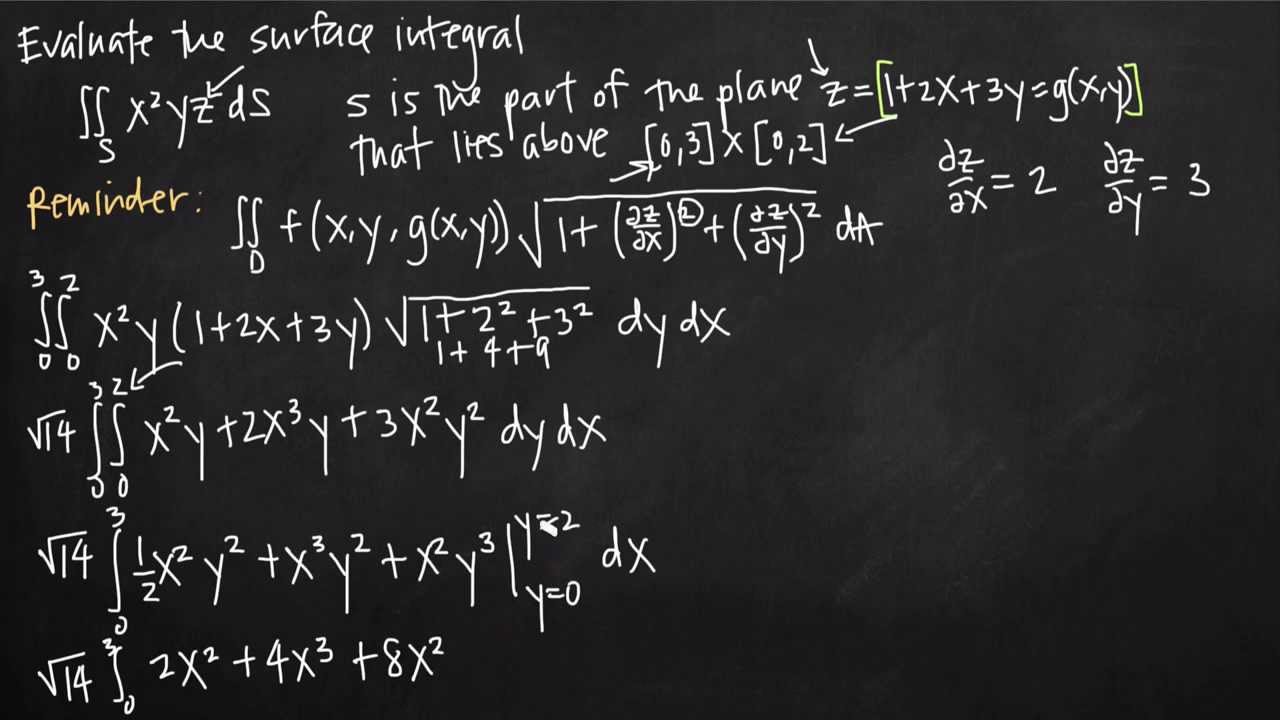 Evaluate the surface integral
∬_S x²yz dS   S is the part of the plane z = [1+2x+3y = g(x,y)]
that lies above [0,3] x [0,2]
∂z/∂x = 2   ∂z/∂y = 3
Reminder:
∬_D f(x,y,g(x,y)) √(1+(∂z/∂x)²+(∂z/∂y)²) dA
∫₀³∫₀² x²y(1+2x+3y) √(1+2²+3²) dy dx
1+4+9
√14 ∫₀³∫₀² x²y+2x³y+3x²y² dy dx
√14 ∫₀³ ½x²y²+x³y²+x²y³ |_{y=0}^{y=2} dx
√14 ∫₀³ 2x²+4x³+8x²